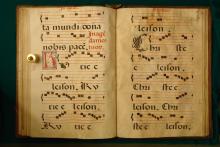 ta mundi dona
nobis pacē.
rie e
leison,
rie e
leison, Ky
rie e
leison,
Chri ste e
leison,
Chri ste e
leison, Chri
ste e